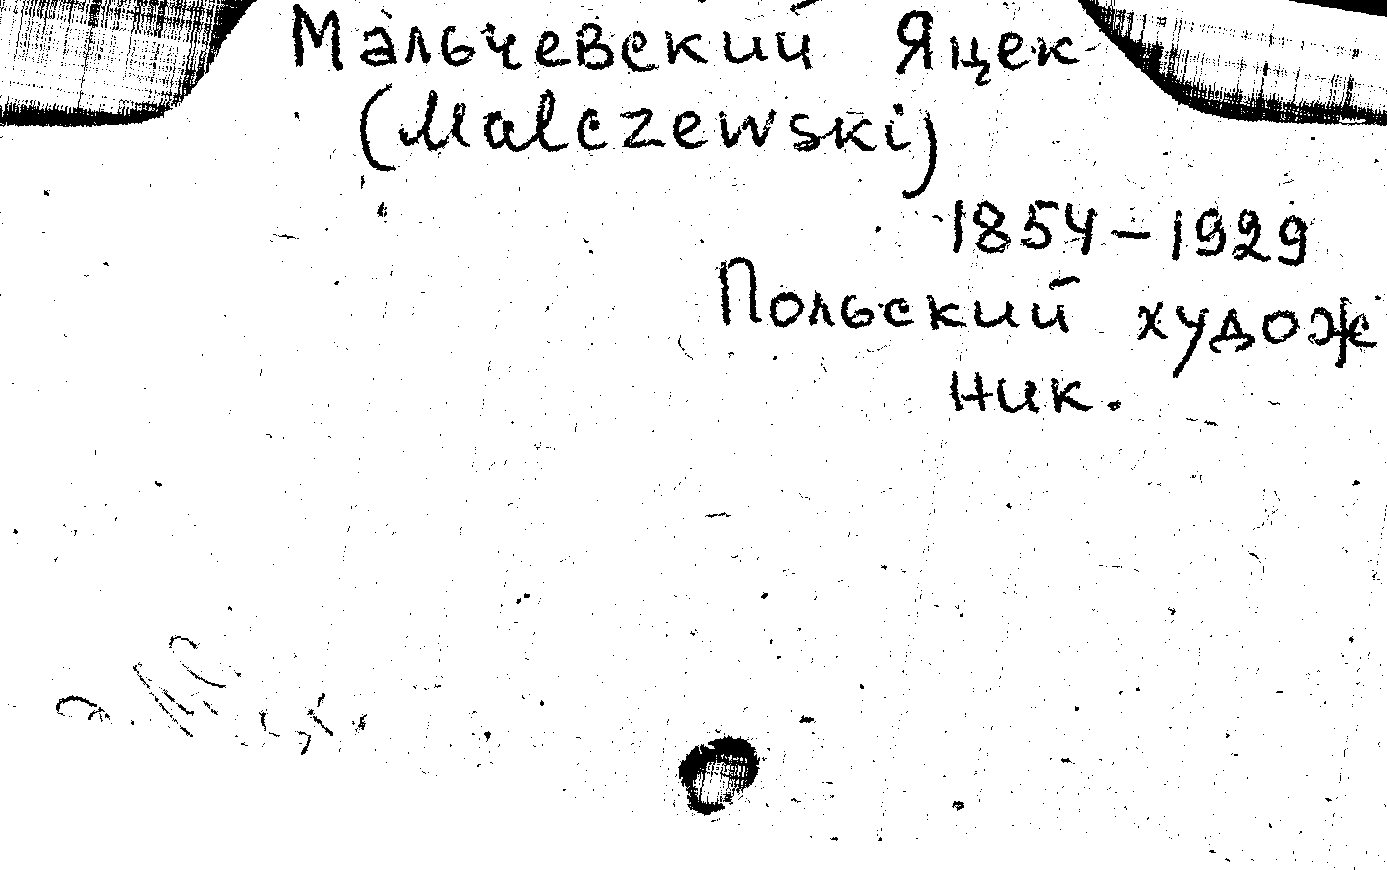 Мальчевский Яцек
(Malczewski)
1854-1929
Польский худож
ник.